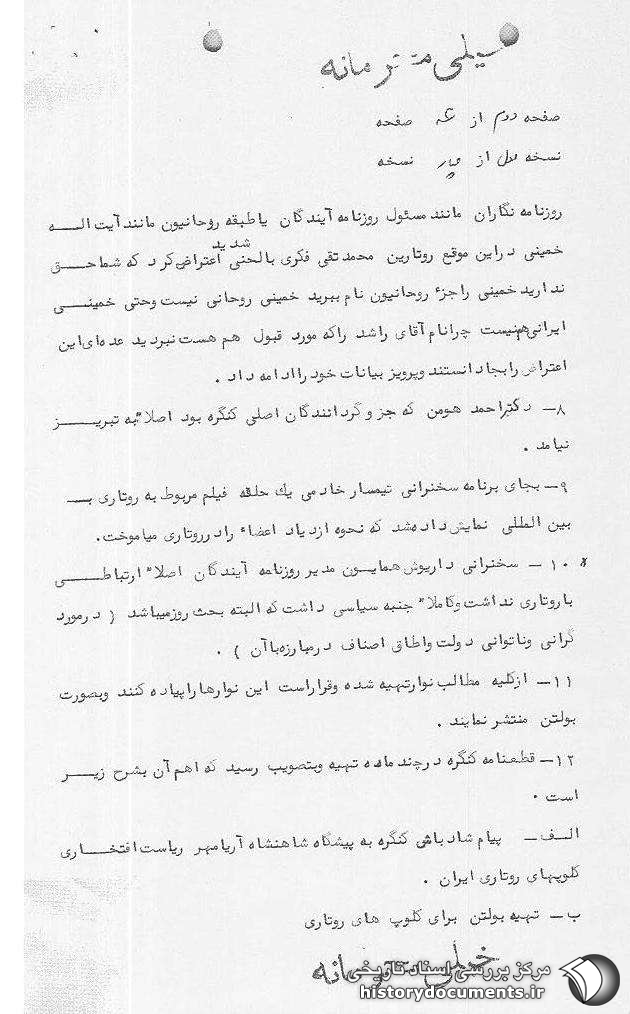 خیلی محرمانه
صفحه دوم از سه صفحه
نسخه اول از چهار نسخه
روزنامه نگاران مانند مسئول روزنامه آیندگان یا طبقه روحانیون مانند آیت اله
خمینی در این موقع روتارین محمد تقی فکری با لحنی شدید اعتراض کرد که شما حق
ندارید خمینی را جزء روحانیون نام ببرید خمینی روحانی نیست وحتی خمینی
ایرانی هم نیست چرا نام آقای راشد را که مورد قبول هم هست نبردید عده ای این
اعتراض را بجا دانستند و پرویز بیانات خود را ادامه داد .
۸ – دکتر احمد هومن که جز و گردانندگان اصلی کنگره بود اصلا" به تبریز
نیامد .
۹ – بجای برنامه سخنرانی تیمسار خادمی یک حلقه فیلم مربوط به روتاری بــ
بین المللی نمایش داده شد که نحوه ازدیاد اعضاء را در روتاری میآموخت.
* ۱۰ – سخنرانی داریوش همایون مدیر روزنامه آیندگان اصلا" ارتباطی
با روتاری نداشت و کاملا" جنبه سیاسی داشت که البته بحث روز میباشد ( در مورد
گرانی وناتوانی دولت واطاق اصناف در مبارزه با آن ) .
۱۱ – از کلیه مطالب نوار تهیه شده و قرار است این نوارها را پیاده کنند وبصورت
بولتن منتشر نمایند .
۱۲ – قطعنامه کنگره در چند ماده تهیه وبتصویب رسید که اهم آن بشرح زیر
است .
الف – پیام شادباش کنگره به پیشگاه شاهنشاه آریامهر ریاست افتخاری
کلوپهای روتاری ایران .
ب – تهیه بولتن برای کلوپ های روتاری
خیلی محرمانه
مرکز بررسی اسناد تاریخی
historydocuments.ir